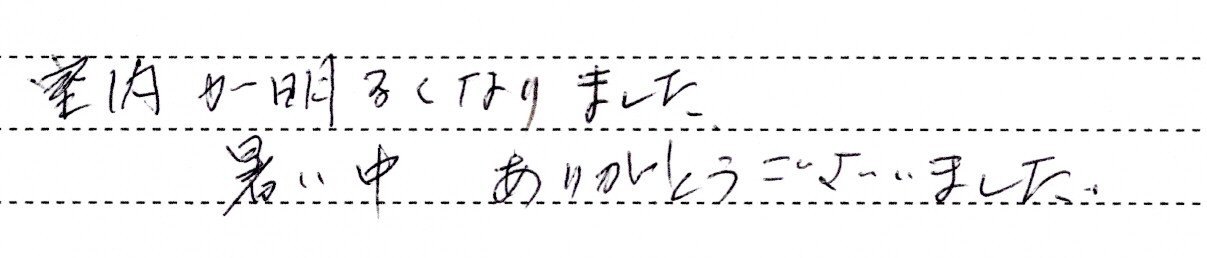 室内が明るくなりました。
暑い中 ありがとうございました。